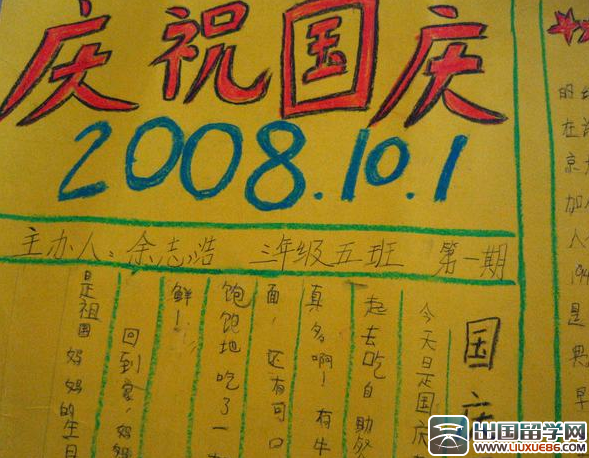 庆祝国庆
2008.10.1
主办人：余志浩 三年级五班 第一期
国庆
今天日是国庆
起去吃自助
真多啊！有牛
面，还有可口
饱饱地吃了一
鲜！
回到家，妈妈
是祖国妈妈的生日
的
在
京
加
人
194
是
典
早
出国留学网
www.liuxue86.com